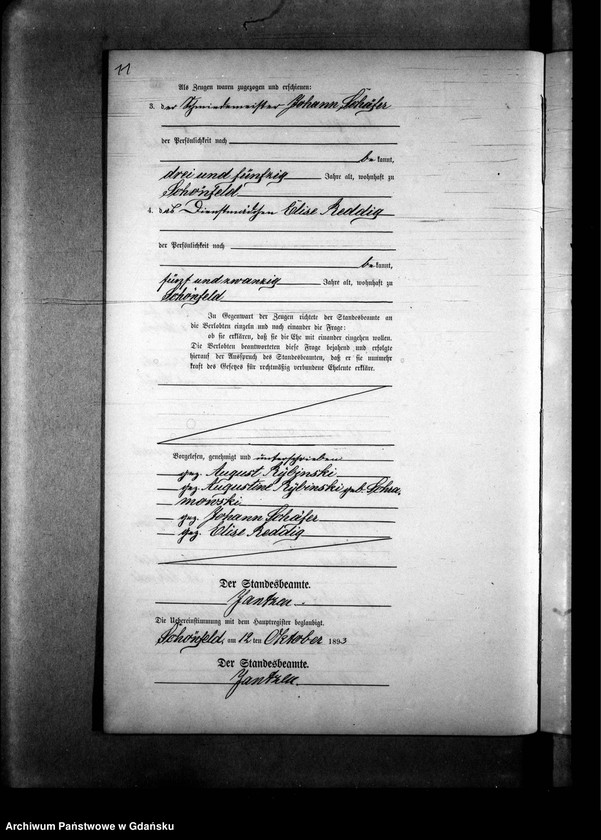 11
Als Zeugen waren zugezogen und erschienen:
3. der Schmiedemeister Johann Schäfer
der Persönlichkeit nach
be kannt,
drei und fünfzig Jahre alt, wohnhaft zu
Schönfeld
4. das Dienstmädchen Elise Reddig
der Persönlichkeit nach
be kannt,
fünf und zwanzig Jahre alt, wohnhaft zu
Schönfeld
In Gegenwart der Zeugen richtete der Standesbeamte an
die Verlobten einzeln und nach einander die Frage:
ob sie erklären, daß sie die Ehe mit einander eingehen wollen.
Die Verlobten beantworteten diese Frage bejahend und erfolgte
hierauf der Ausspruch des Standesbeamten, daß er sie nunmehr
kraft des Gesetzes für rechtmäßig verbundene Eheleute erkläre.
Vorgelesen, genehmigt und unterschrieben
gez. August Rybinski
gez. Augustine Rybinski geb. Schu
mowski
gez. Johann Schäfer
gez. Elise Reddig
Der Standesbeamte.
Jantzen.
Die Uebereinstimmung mit dem Hauptregister beglaubigt.
Schönfeld, am 12 ten Oktober 1893
Der Standesbeamte.
Jantzen.
Archiwum Państwowe w Gdańsku